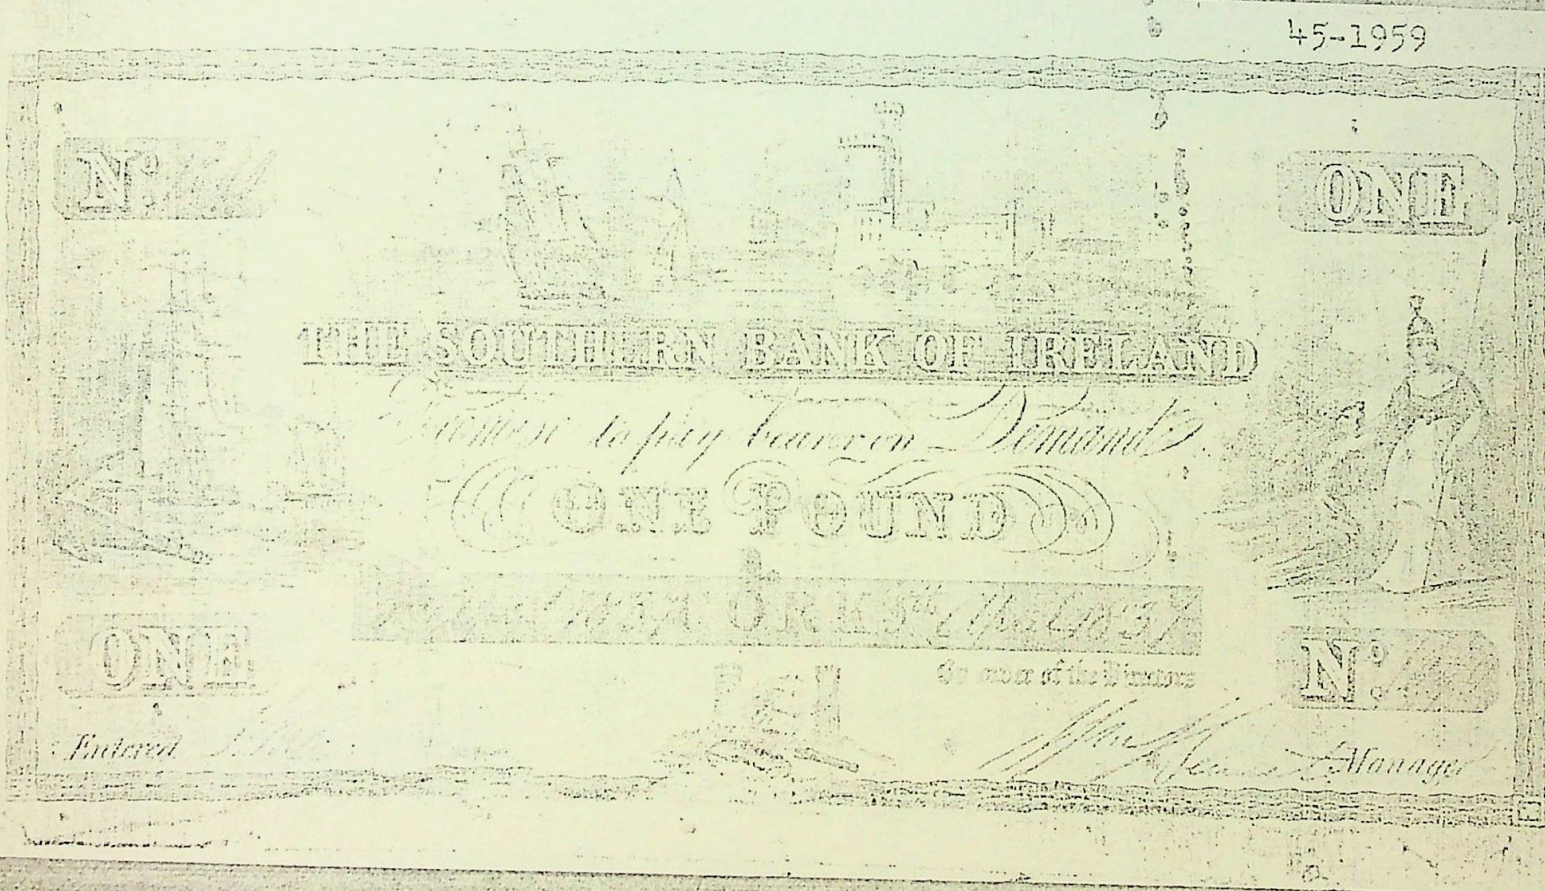 45-1959
Nº
ONE
THE SOUTHERN BANK OF IRELAND
Promise to pay bearer on Demand
ONE POUND
CORK 5th 1837
ONE
By order of the Directors
Nº
Entered
Manager